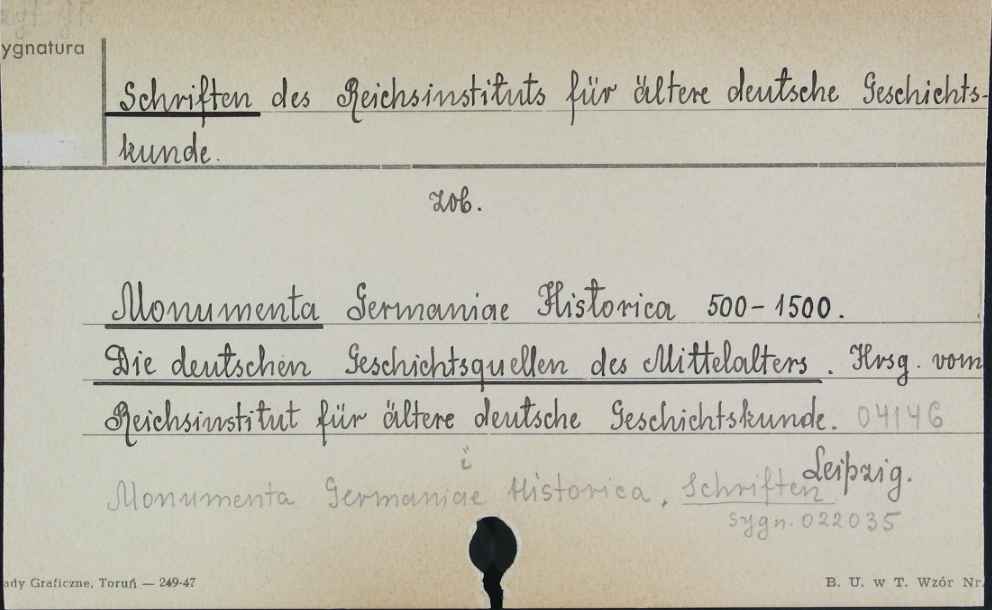 ygnatura
Schriften des Reichsinstituts für ältere deutsche Geschichts-
kunde.
zob.
Monumenta Germaniae Historica 500-1500.
Die deutschen Geschichtsquellen des Mittelalters. Hrsg. vom
Reichsinstitut für ältere deutsche Geschichtskunde. 04146
i
Leipzig.
Monumenta Germaniae Historica, Schriften
sygn. 022035
ady Graficzne, Toruń — 249-47
B. U. w T. Wzór Nr.